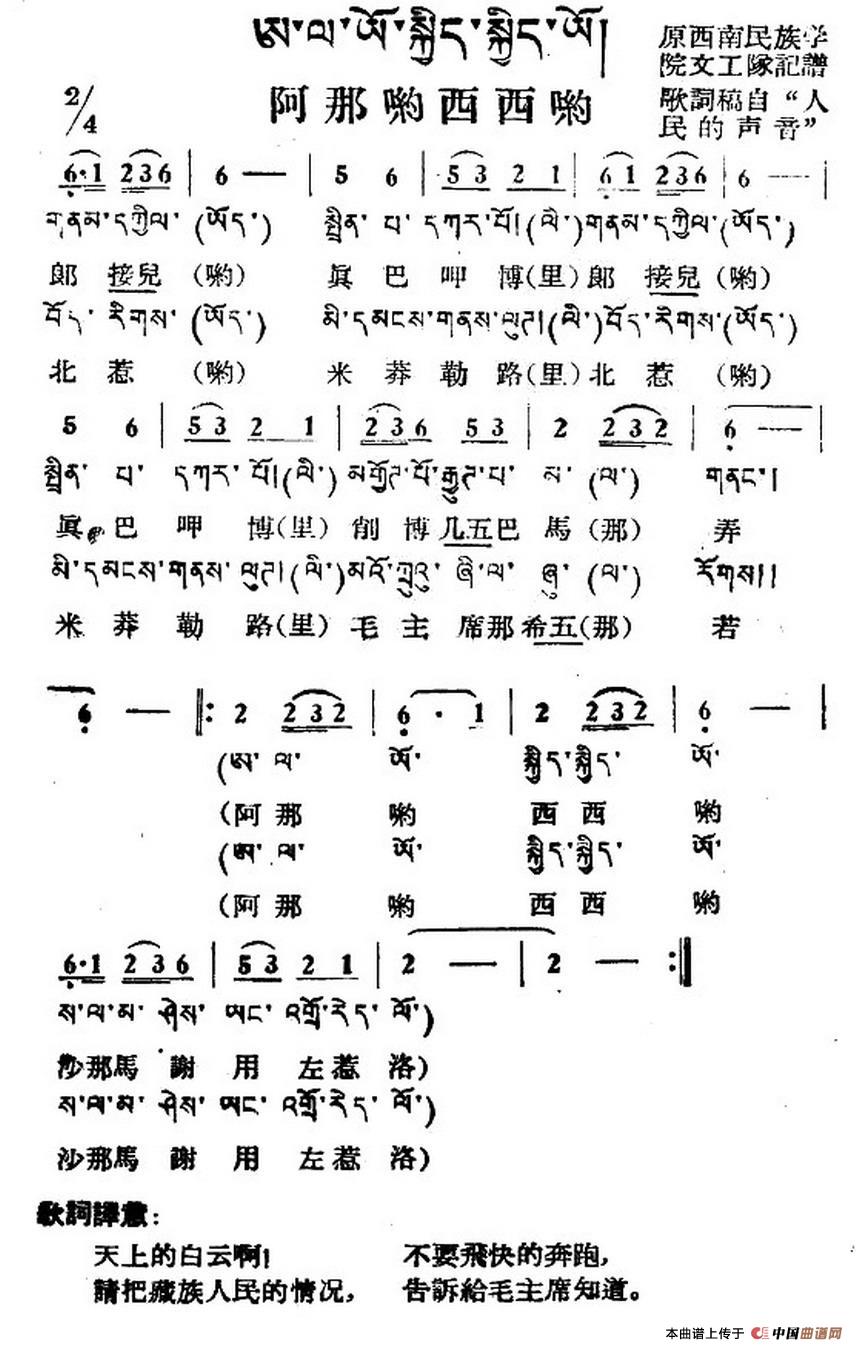 ཨ་ལ་ཡོ་སྐྱིད་སྐྱིད་ཡོ།
阿那喲西西喲
原西南民族学
院文工隊記譜
歌詞稿自“人
民的声音”
2/4
6·1 236 | 6 — | 5 6 | 53 2 1 | 61 236 | 6 — |
གནམ་དཀྱིལ་(ཡོད་) སྤྲིན་པ་དཀར་པོ།(ལི་)གནམ་དཀྱིལ་(ཡོད་)
郞接兒(喲) 眞巴呷博(里)郞接兒(喲)
བོད་རིགས་(ཡོད་) མི་དམངས་གནས་ལུཊ།(ལི་)བོད་རིགས་(ཡོད་)
北惹(喲) 米莽勒路(里)北惹(喲)
5 6 | 53 2 1 | 236 53 | 2 232 | 6 — |
སྤྲིན་པ་དཀར་པོ།(ལི་)མགྱོཊ་པོ་རྒྱུཊ་པ་མ་(ལ་)གནང་།
眞巴呷博(里)削博几五巴馬(那)弄
མི་དམངས་གནས་ལུཊ།(ལི་)མའོ་ཀྲུའུ་ཞི་ལ་ཞུ་(ལ་)རོགས།།
米莽勒路(里)毛主席那希五(那)若
6 — |: 2 232 | 6 · 1 | 2 232 | 6 — |
(ཨ་ལ་ཡོ་སྐྱིད་སྐྱིད་ཡོ་
(阿那喲西西喲
(ཨ་ལ་ཡོ་སྐྱིད་སྐྱིད་ཡོ་
(阿那喲西西喲
6·1 236 | 53 2 1 | 2 — | 2 — :|
ས་ལ་མ་ཤེས་ཡང་འགྲོ་རེད་ལོ་)
沙那馬謝用左惹洛)
ས་ལ་མ་ཤེས་ཡང་འགྲོ་རེད་ལོ་)
沙那馬謝用左惹洛)
歌詞譯意:
天上的白云啊! 不要飛快的奔跑,
請把藏族人民的情况, 告訴給毛主席知道。
本曲谱上传于 中国曲谱网